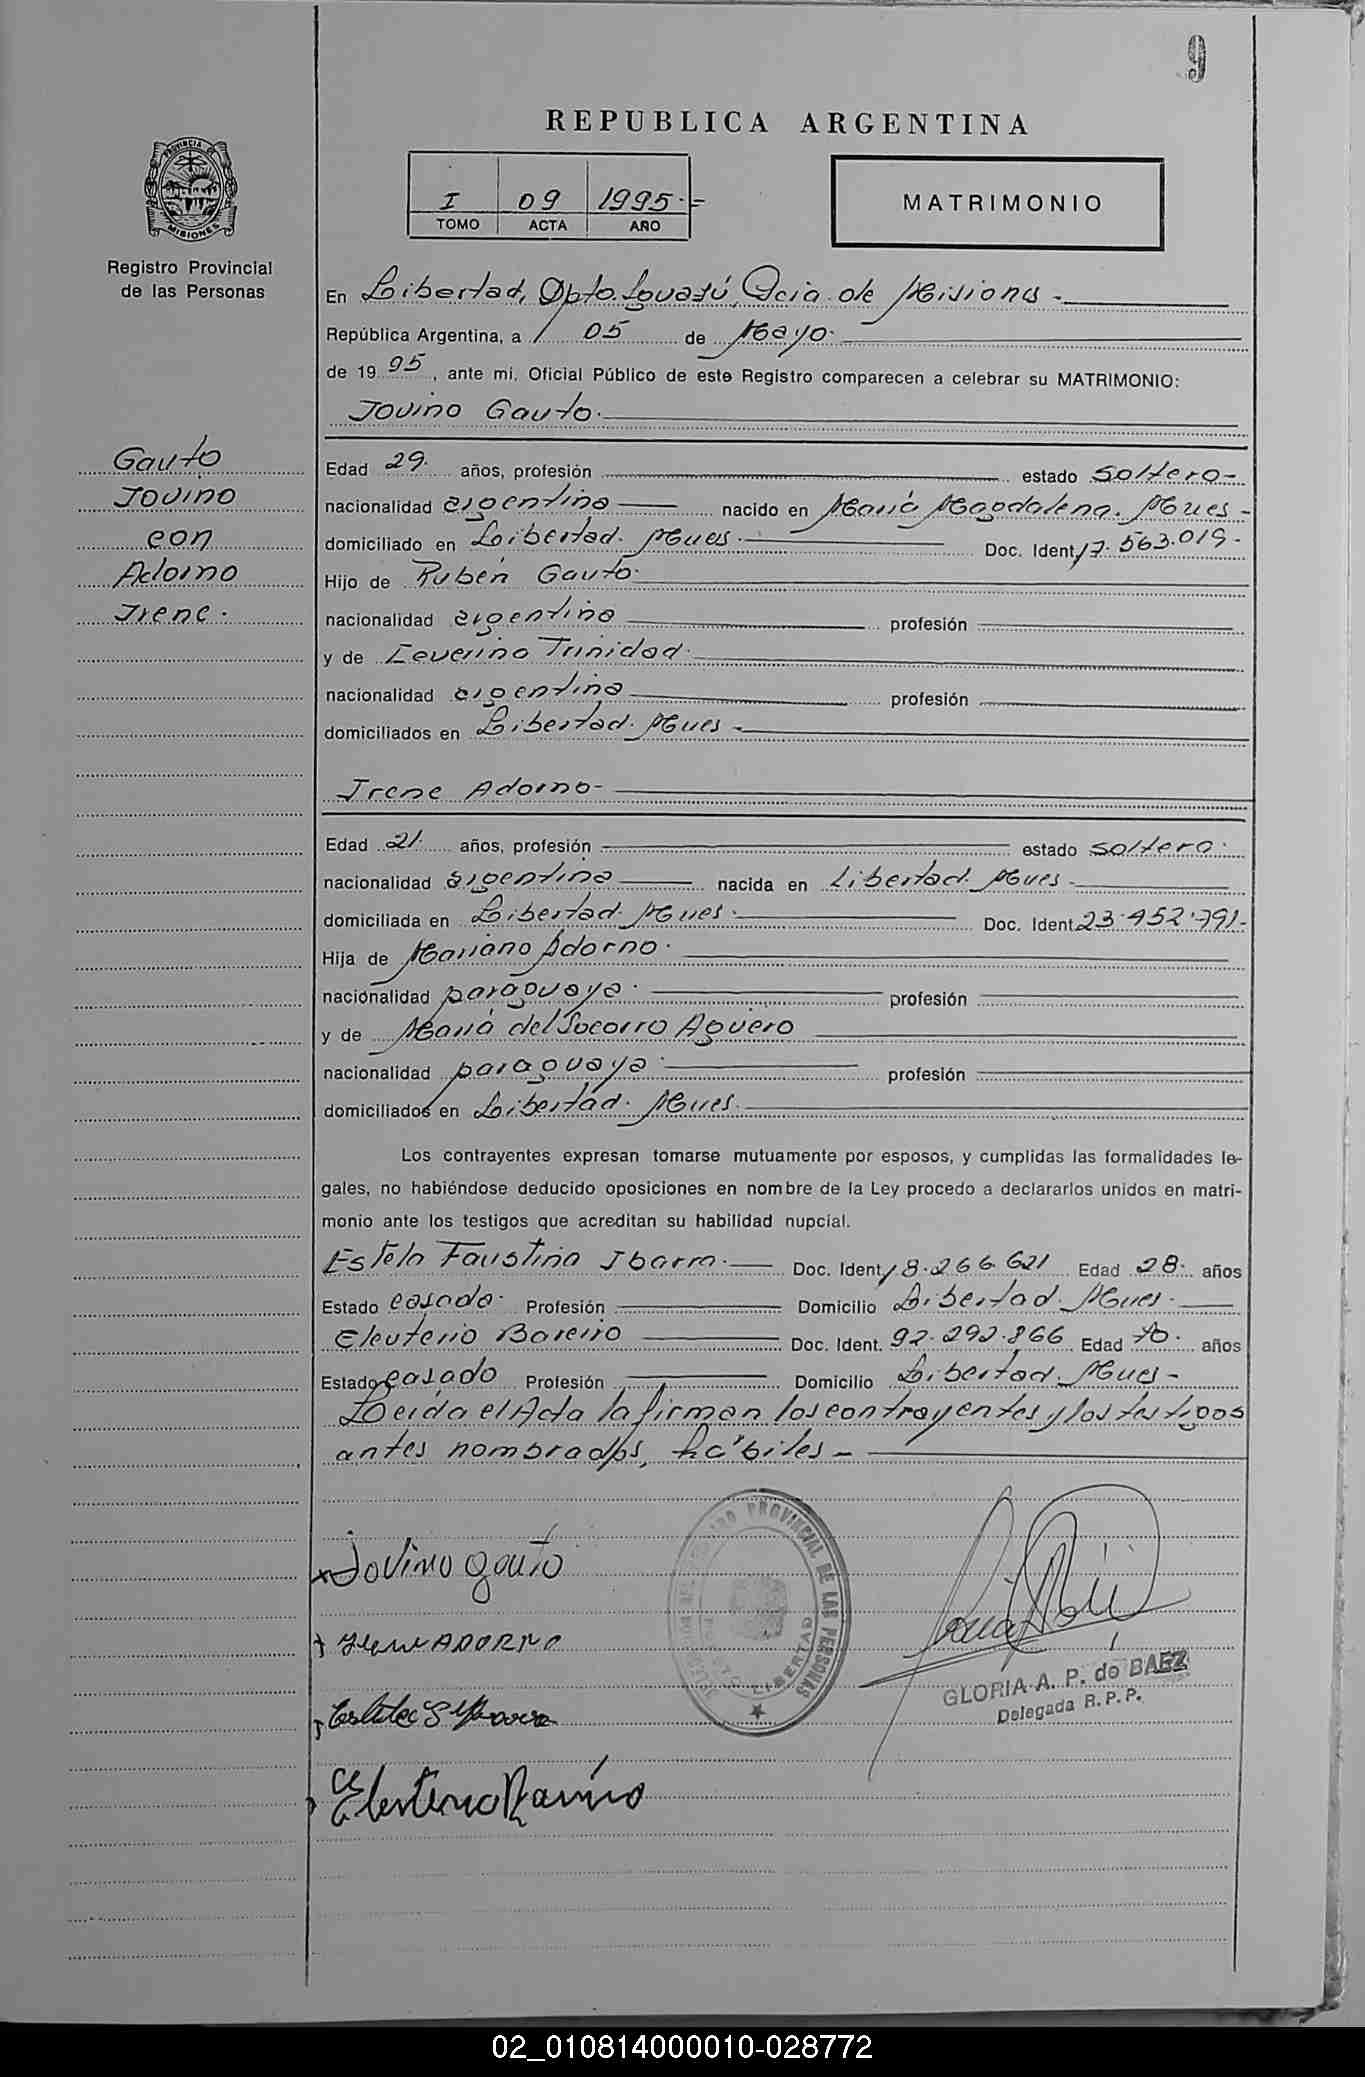 9
REPUBLICA ARGENTINA
I 09 1995.-
TOMO ACTA AÑO
MATRIMONIO
PROVINCIA DE
MISIONES
Registro Provincial
de las Personas
En Libertad, Dpto. Iguazú, Pcia. de Misiones -
República Argentina, a 05 de Mayo.
de 19 95, ante mi, Oficial Público de este Registro comparecen a celebrar su MATRIMONIO:
Jovino Gauto.
Gauto
Jovino
con
Adorno
Irene.
Edad 29. años, profesión estado soltero-
nacionalidad argentina nacido en María Magdalena. Mnes-
domiciliado en Libertad. Mnes. Doc. Ident. 17.563.019-
Hijo de Rubén Gauto.
nacionalidad argentino profesión
y de Zeverina Trinidad.
nacionalidad argentina profesión
domiciliados en Libertad. Mnes-
Irene Adorno-
Edad 21. años, profesión estado soltera.
nacionalidad argentina nacida en Libertad. Mnes-
domiciliada en Libertad. Mnes. Doc. Ident. 23.952.791-
Hija de Mariano Adorno.
nacionalidad paraguaya. profesión
y de María del Socorro Aguero
nacionalidad paraguaya. profesión
domiciliados en Libertad. Mnes.
Los contrayentes expresan tomarse mutuamente por esposos, y cumplidas las formalidades le-
gales, no habiéndose deducido oposiciones en nombre de la Ley procedo a declararlos unidos en matri-
monio ante los testigos que acreditan su habilidad nupcial.
Estela Faustina Ibarra. Doc. Ident. 18.266.621 Edad 28. años
Estado casada. Profesión Domicilio Libertad. Mnes.
Eleuterio Bareiro Doc. Ident. 92.292.866 Edad 70. años
Estado casado Profesión Domicilio Libertad. Mnes-
Leída el Acta la firman los contrayentes y los testigos
antes nombrados, hábiles-
Jovino Gauto
Irene ADORNO
REGISTRO PROVINCIAL DE LAS PERSONAS
LIBERTAD
GLORIA A. P. de BAEZ
Delegada R. P. P.
Eleuterio Bareiro
02_010814000010-028772